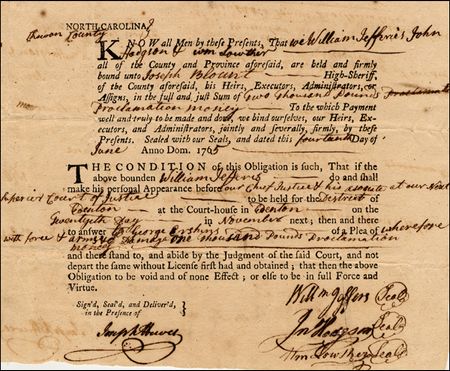 NORTH CAROLINA
Chowan County
KNOW all Men by these Presents, That we William Jefferies John
Hodgson & Wm Lowther
all of the County and Province aforesaid, are held and firmly
bound unto Joseph Blount High-Sheriff,
of the County aforesaid, his Heirs, Executors, Administrators, or
Assigns, in the just and just Sum of two thousand Pounds Proclamation
Proclamation money To the which Payment
well and truly to be made and done, we bind ourselves, our Heirs, Exe-
cutors, and Administrators, jointly and severally, firmly, by these
Presents. Sealed with our Seals, and dated this fourteenth Day of
June Anno Dom. 1765
THE CONDITION of this Obligation is such, That if the
above bounden William Jefferis do and shall
make his personal Appearance before our Chief Justice & his at our Next
Superior Court of Justice to be held for the District of
Edenton at the Court-house in Edenton on the
Twentyeth Day in November next; then and there
to answer to George of a Plea of wherefore
with force & arms &c Damage one thousand Pounds Proclamation
money
and there to stand to, and abide by the Judgment of the said Court, and not
depart the same without License first had and obtained; that then the above
Obligation to be void and of none Effect; or else to be in full Force and
Virtue.
Sign'd, Seal'd, and Deliver'd,
in the Presence of
Joseph Hewes
Willm Jeffers Seal
Jn Hodgson Seal
Wm Lowther Seal